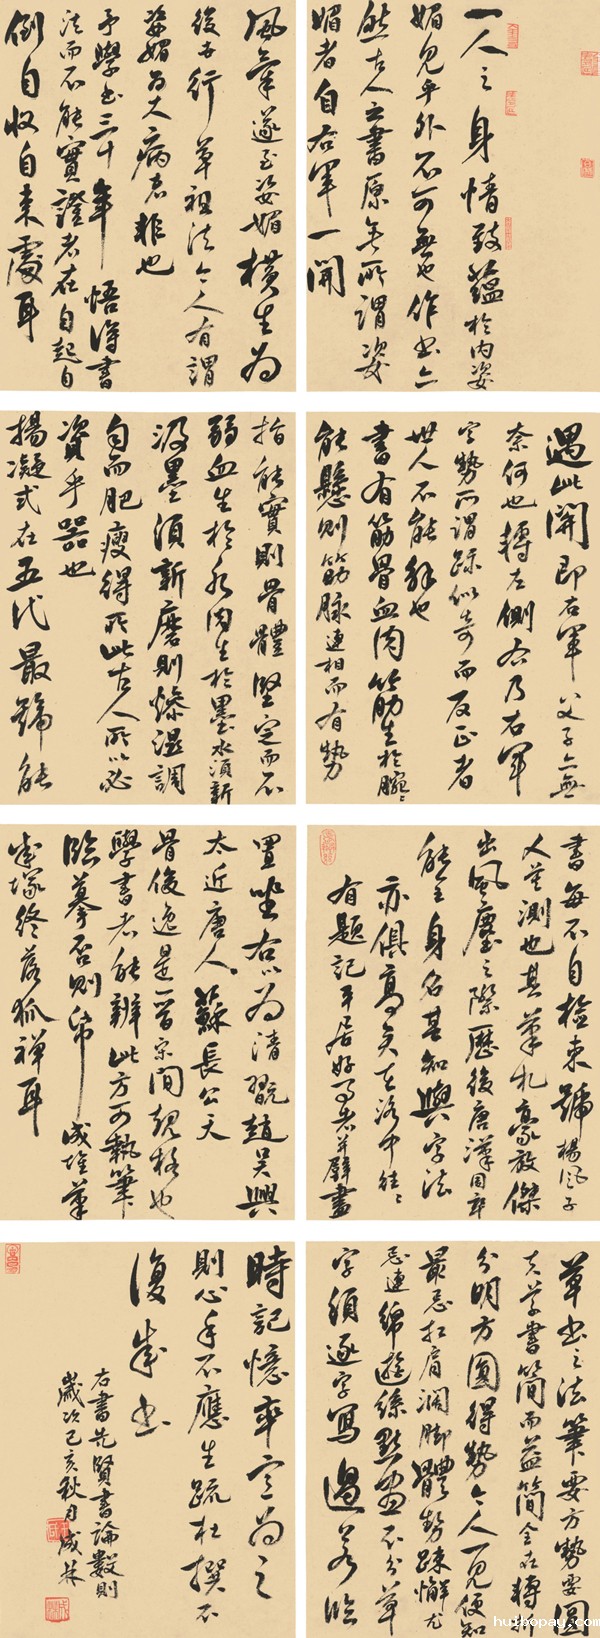 一人之身情致蘊於内姿
媚見乎外不可無也作书亦
然古人之書原無所謂姿
媚者自右軍一開
風氣遂至姿媚横生为
後世行草祖法今人有謂
姿媚为大病者非也
予學书三十年悟得書
法而不能實證者在自起自
倒自收自束處耳
遇此關即右軍父子亦無
奈何也轉左側右乃右軍
字勢所謂跡似奇而反正者
世人不能解也
書有筋骨血肉筋生於腕腕
能懸則筋脉連相而有勢
指能實則骨體堅定而不
弱血生於水肉生於墨水須新
汲墨須新磨則燥濕調
匀而肥瘦得所此古人所以必
資乎器也
楊凝式在五代最號能
書每不自檢束號楊风子
人莫測也其筆札豪放傑
出風塵之際歷後唐漢周卒
能全身名其知與字法
亦俱高矣在洛中往往
有題記平居好事者并壁畫
置坐右以為清翫趙吴興
太近唐人蘇長公天
骨俊逸是晉宋間規格也
學書者能辨此方可執筆
臨摹否則紙成堆筆
成塚终落狐禅耳
草书之法筆要方勢要圓
夫草書簡而益簡全在轉折
分明方圓得勢令人一見便知
最忌扛肩濶脚體勢疎懈尤
忌連綿遊絲點画不分草
字須逐字寫過若臨
時記憶率意为之
則心手不應生疏杜撰不
復成书
右書先賢書論數則
歲次己亥秋月成林
huibopay.com